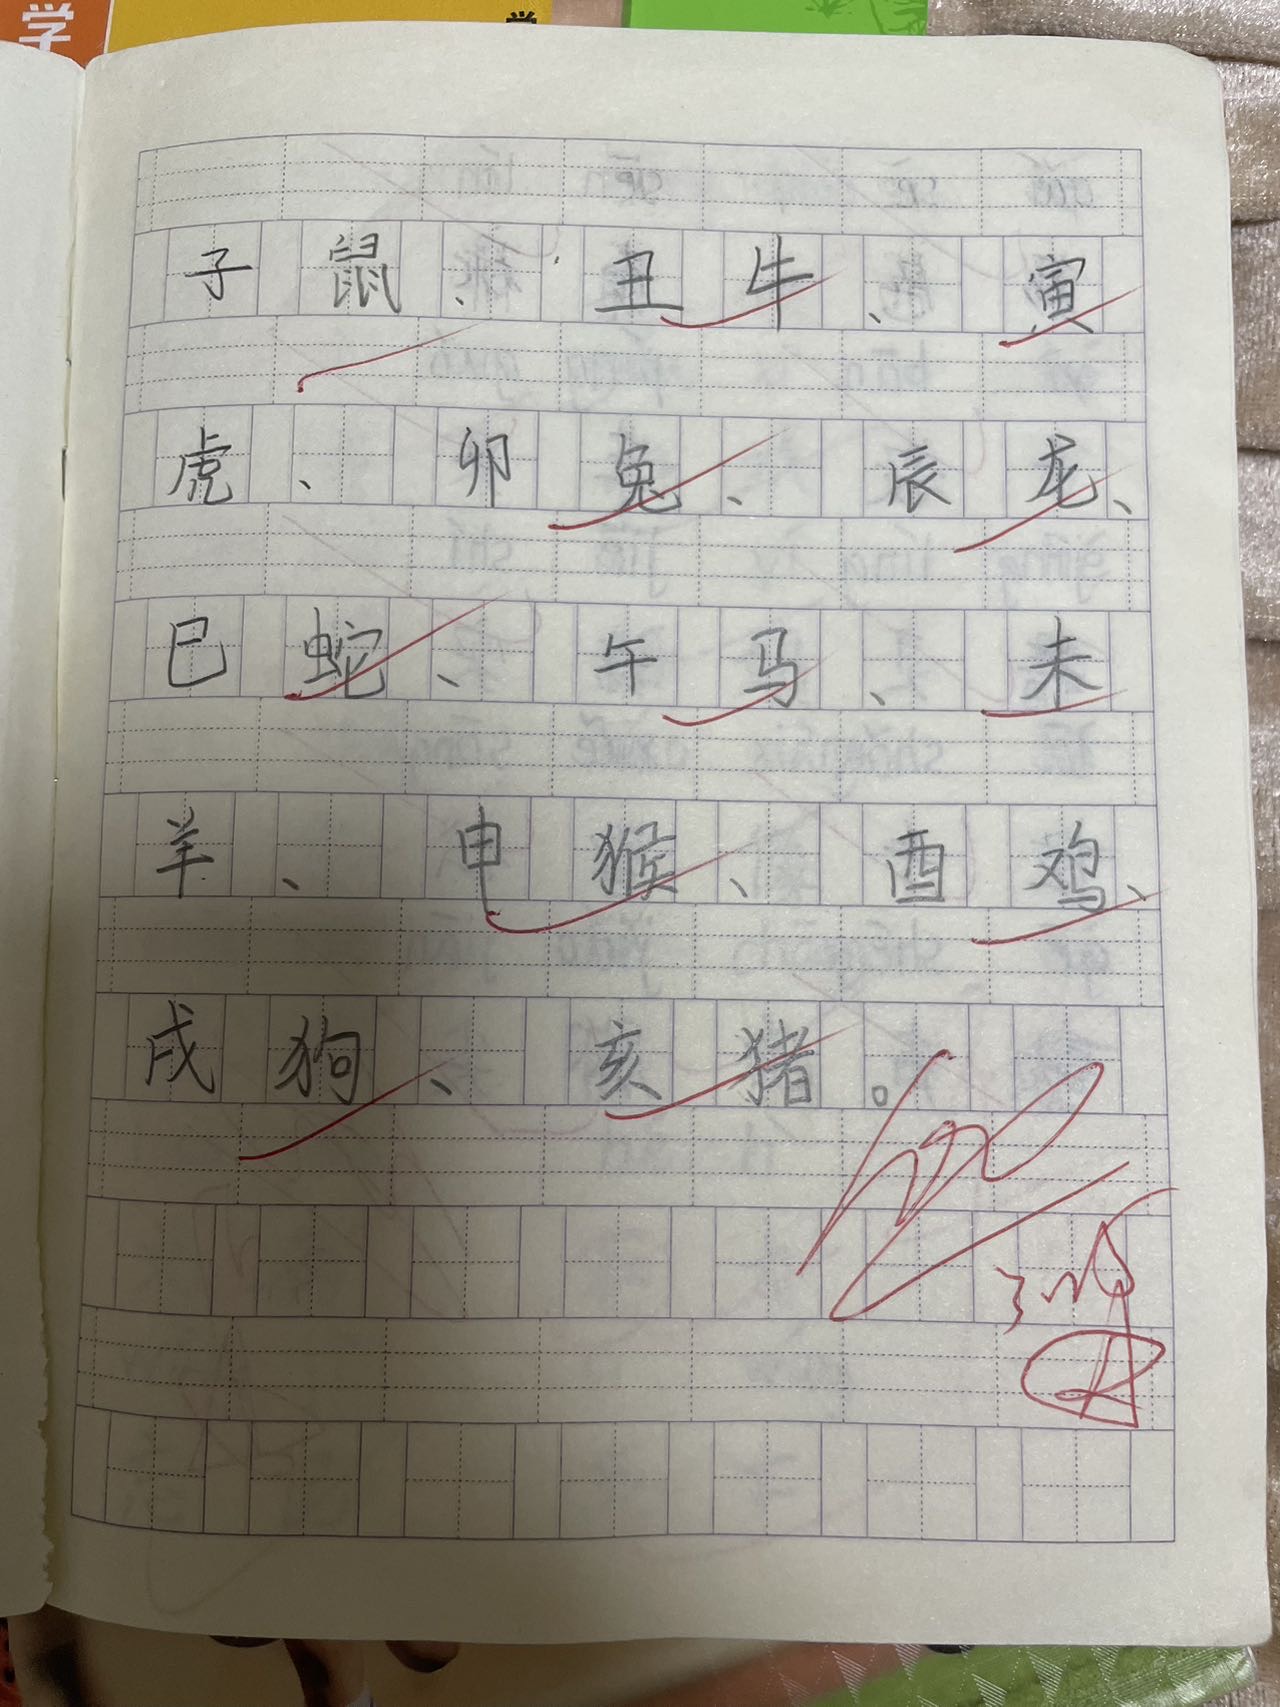 学
学
子鼠、丑牛、寅
虎、卯兔、辰龙、
巳蛇、午马、未
羊、申猴、酉鸡、
戌狗、亥猪。